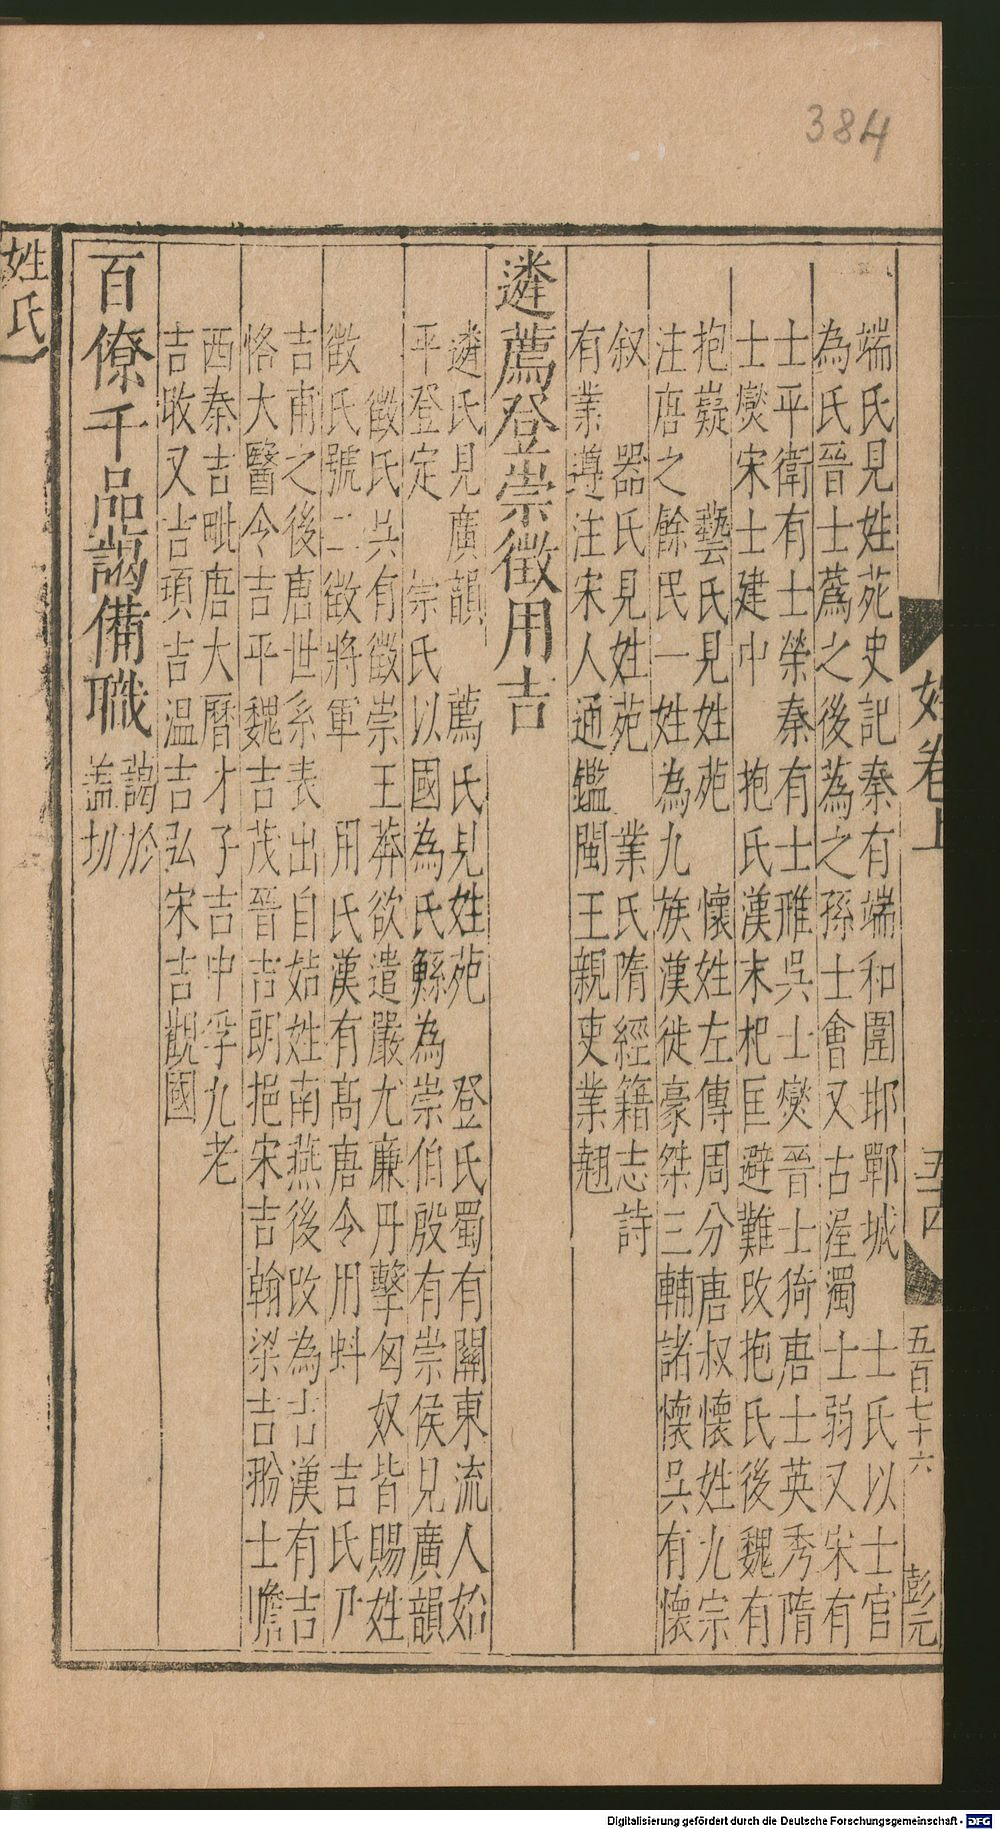 384
姓卷上
五百七十六
彭元
端氏見姓苑史記秦有端和圍邯鄲城　士氏以士官
為氏晉士蔿之後蔿之孫士會又古渥濁士弱又宋有
士平衛有士榮秦有士雅呉士燮晉士猗唐士英秀隋
士燮宋士建中　抱氏漢末杞匡避難改抱氏後魏有
抱嶷　藝氏見姓苑　懷姓左傳周分唐叔懷姓九宗
注唐之餘民一姓為九族漢徙豪桀三輔諸懷呉有懷
叙　器氏見姓苑　業氏隋經籍志詩
有業遵注宋人通鑑閩王親吏業翹
遴薦登崇徵用吉
遴氏見廣韻　薦氏見姓苑　登氏蜀有關東流人始
平登定　崇氏以國為氏鯀為崇伯殷有崇侯見廣韻
徵氏呉有徵崇王莽欲遣嚴尤廉丹擊匈奴皆賜姓
徵氏號二徵將軍　用氏漢有髙唐令用蚪　吉氏尹
吉甫之後唐世系表出自姞姓南燕後改為吉漢有吉
恪大醫令吉平魏吉茂晉吉朗挹宋吉翰梁吉翂士瞻
西秦吉毗唐大曆才子吉中孚九老
吉旼又吉頊吉温吉弘宋吉觀國
百僚千品謁備職
謁於
盖切
姓氏
Digitalisierung gefördert durch die Deutsche Forschungsgemeinschaft - DFG